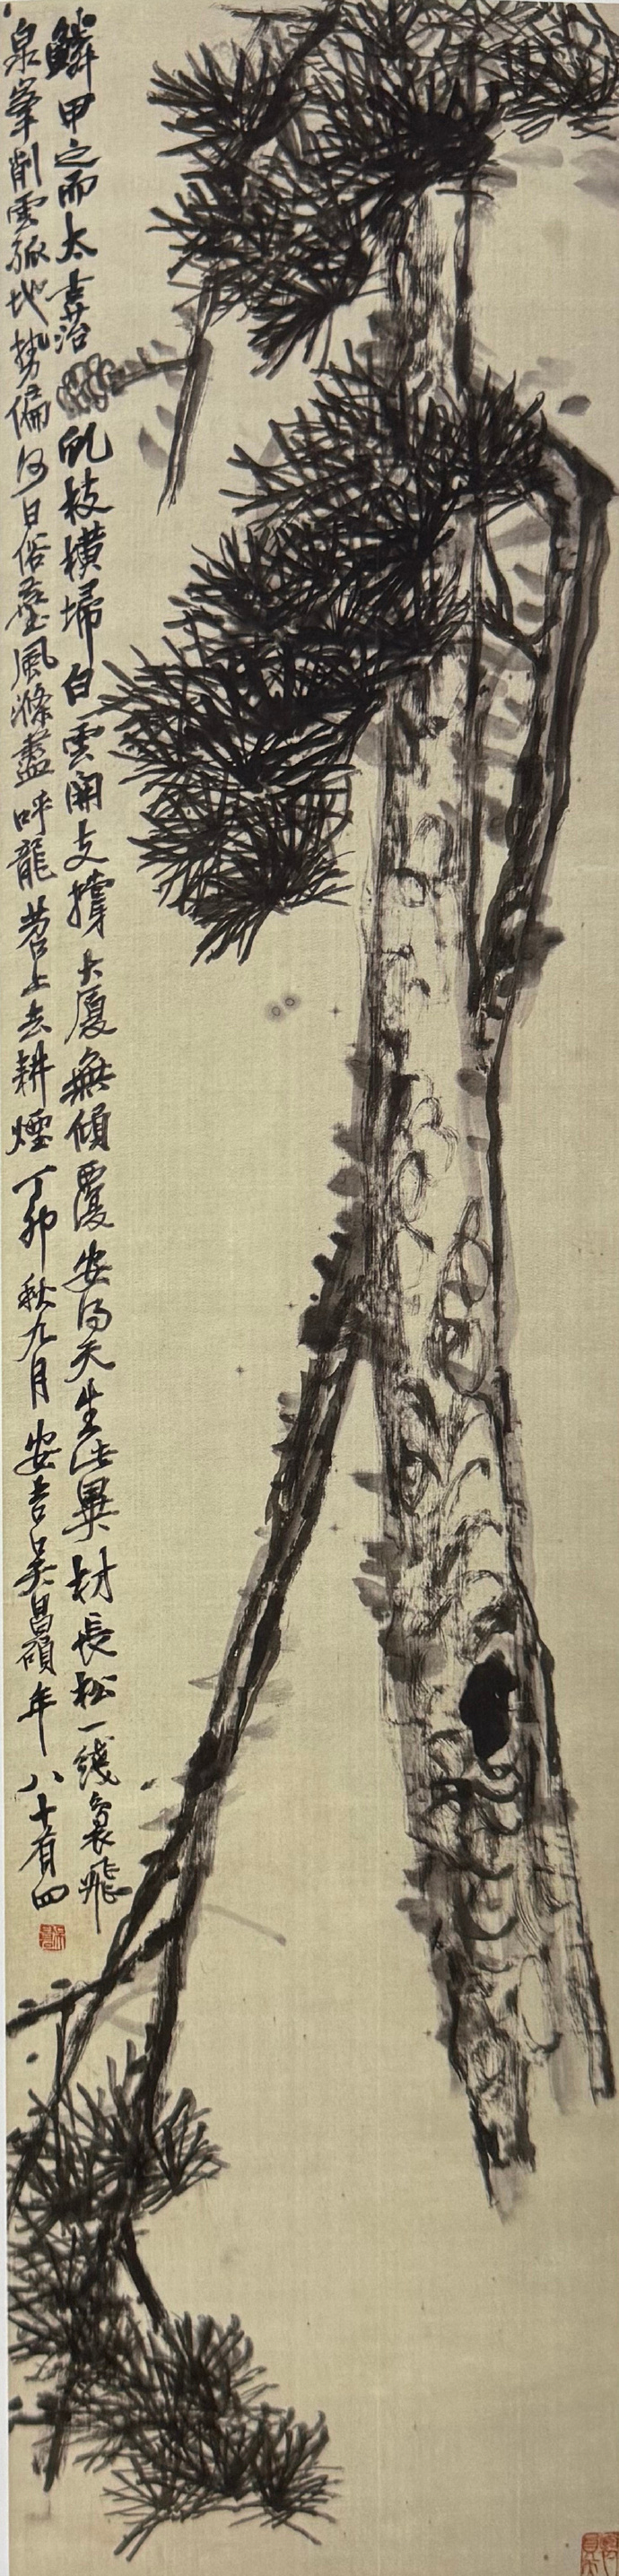 鱗甲之而太古苔虬枝橫埽白雲開支撐大廈無傾覆安得天生此異材長松一綫裊飛
泉峯削雲孤地勢偏何日俗塵風滌盡呼龍苕上去耕煙丁卯秋九月安吉吳昌碩年八十有四